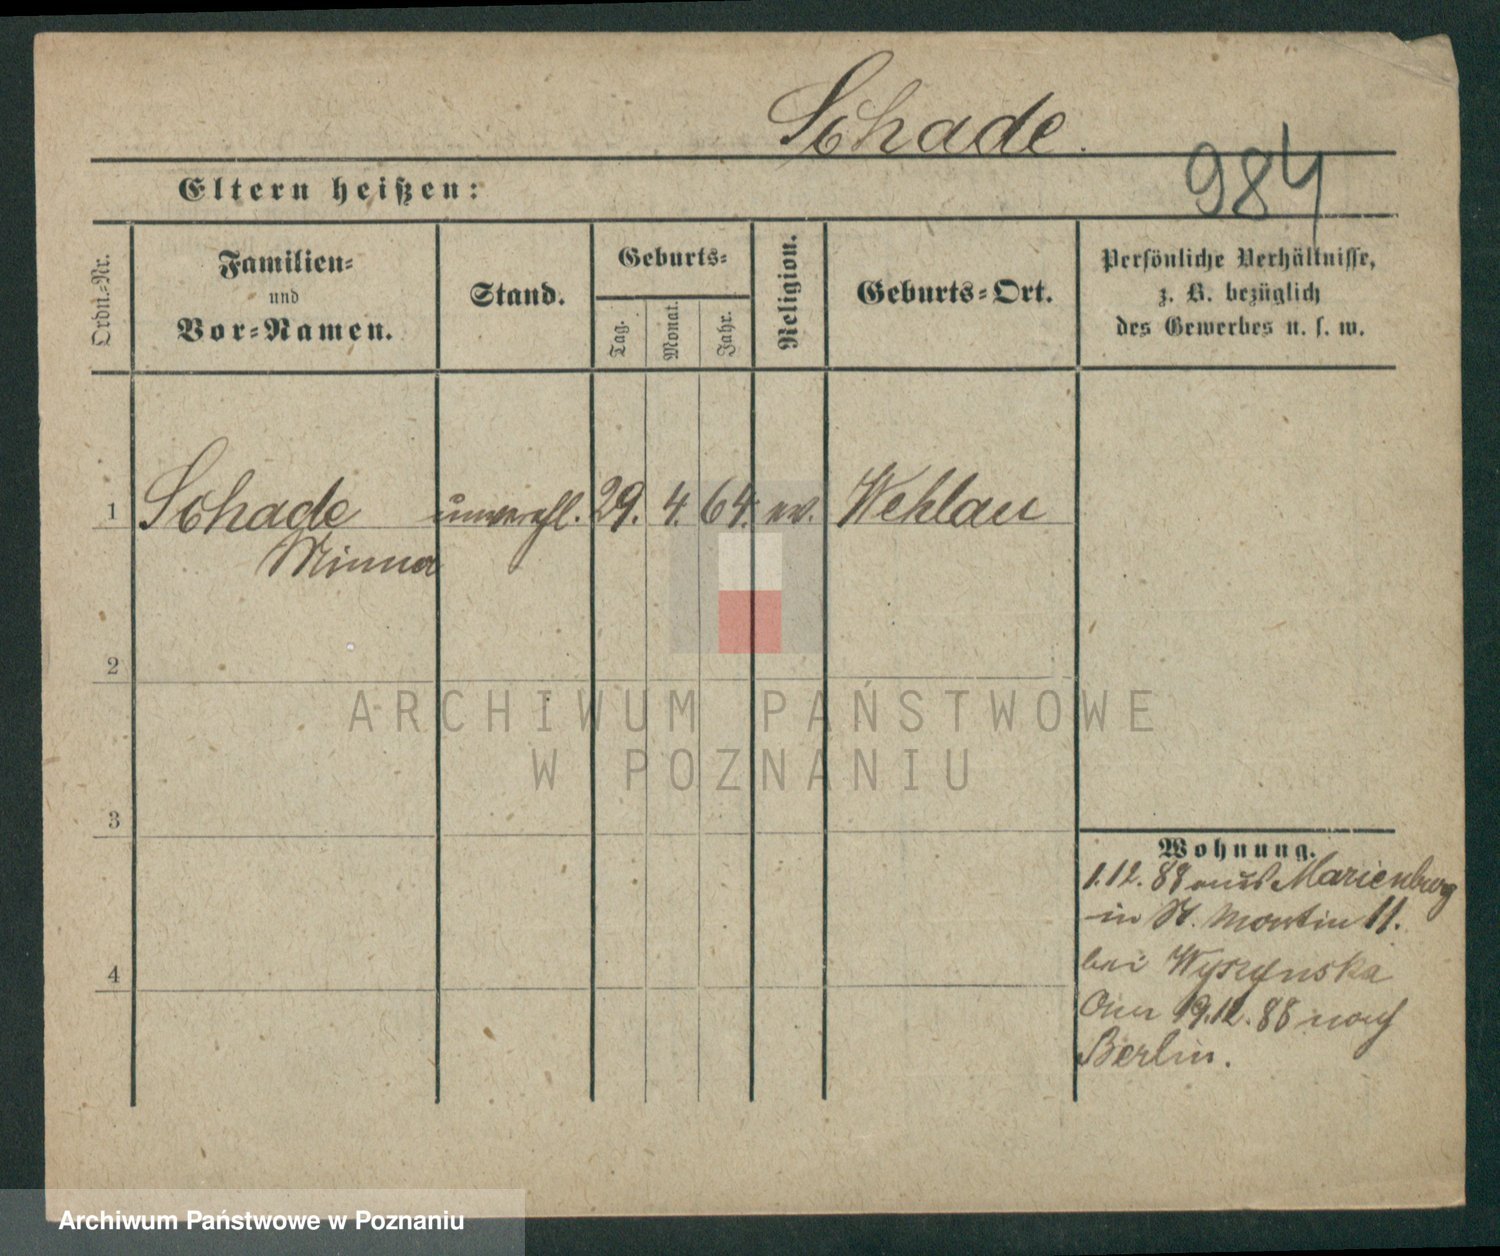 Schade.
984
Eltern heißen:
Ordn.-Nr.
Familien-
und
Vor-Namen.
Stand.
Geburts-
Tag.
Monat.
Jahr.
Religion.
Geburts-Ort.
Persönliche Verhältnisse,
z. B. bezüglich
des Gewerbes u. s. w.
1 Schade unverehl. 29. 4. 64. ev. Wehlau
Minna
2
3
4
Wohnung.
1.12.88 aus Marienburg
in St. Martin 11.
bei Wyszynska
Am 19.12.88 nach
Berlin.
ARCHIWUM PAŃSTWOWE
W POZNANIU
Archiwum Państwowe w Poznaniu